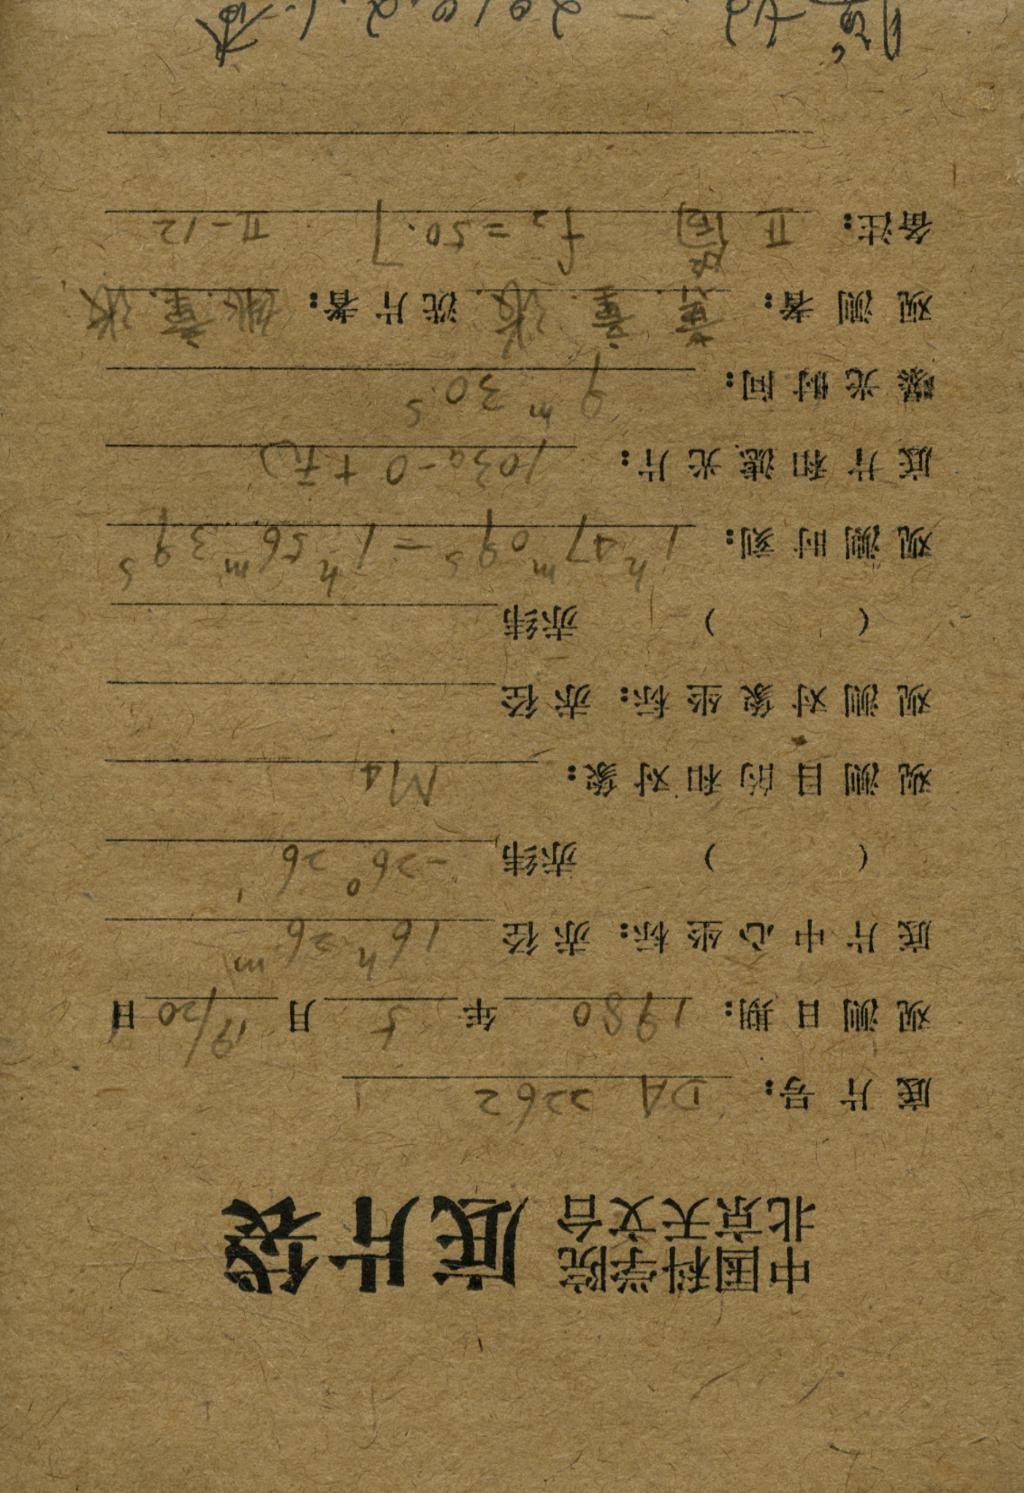 中国科学院
北京天文台 底片袋
底片号： DA 2262
观测日期： 1980 年 5 月 19/20 日
底片中心坐标：赤径 16h 26m
（ ） 赤纬 -26° 26′
观测目的和对象： M4
观测对象坐标：赤径
（ ） 赤纬
观测时刻： 1h 47m 09s — 1h 56m 39s
底片和滤光片： 103a-O + 无
曝光时间： 9m 30s
观测者： 董 张 洗片者： 姚 董 张
备注： II 筒 f2=50.7 II-12